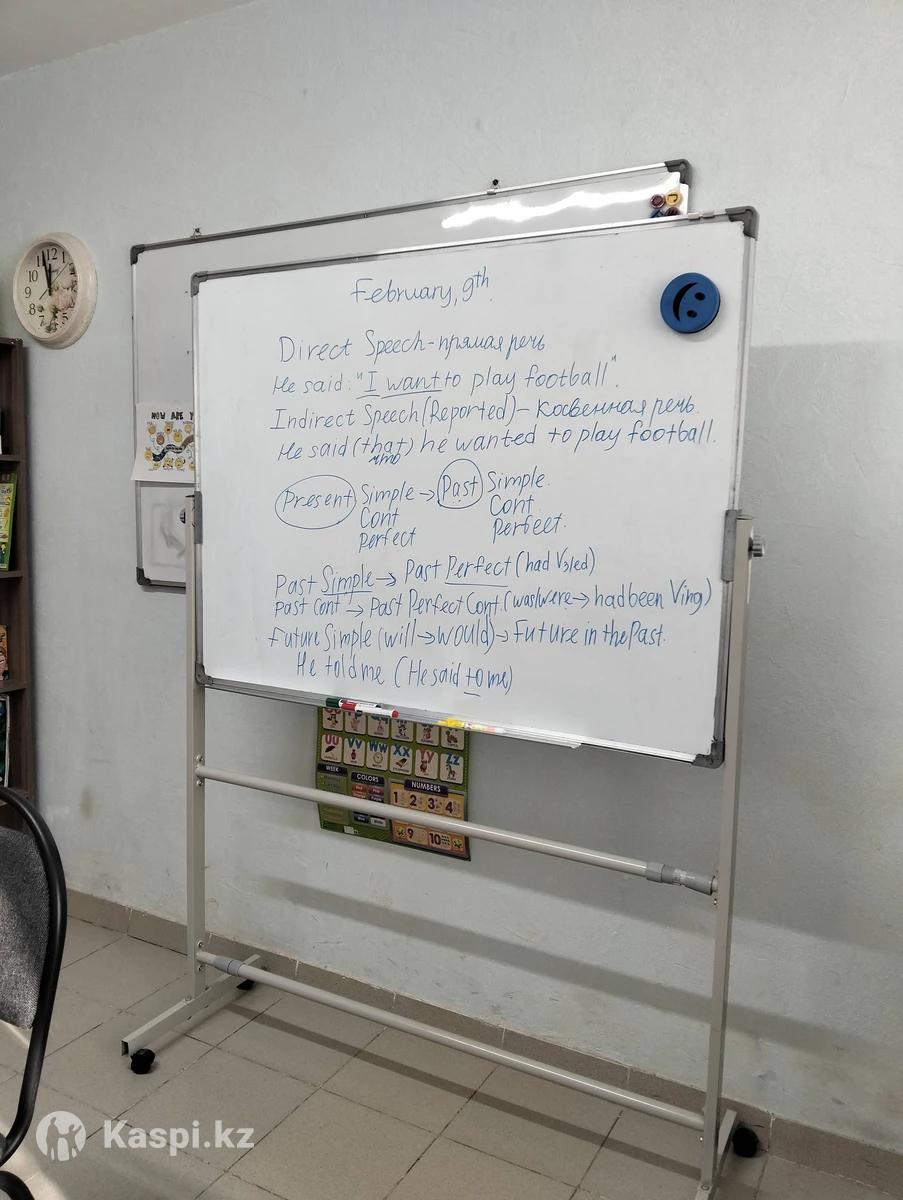 February, 9th.
Direct Speech - прямая речь
He said: "I want to play football".
Indirect Speech (Reported) - косвенная речь.
He said (that) he wanted to play football.
что
Present Simple → Past Simple.
Cont Cont.
perfect Perfect.
Past Simple → Past Perfect (had V3/ed)
Past Cont → Past Perfect Cont. (was/were → had been Ving)
Future Simple (will → would) → Future in the Past.
He told me (He said to me)
HOW ARE Y
12
11
10
9
8
7
6
UU VV WW XX YY ZZ
WEEK COLORS NUMBERS
1 2 3 4
9 10
Kaspi.kz